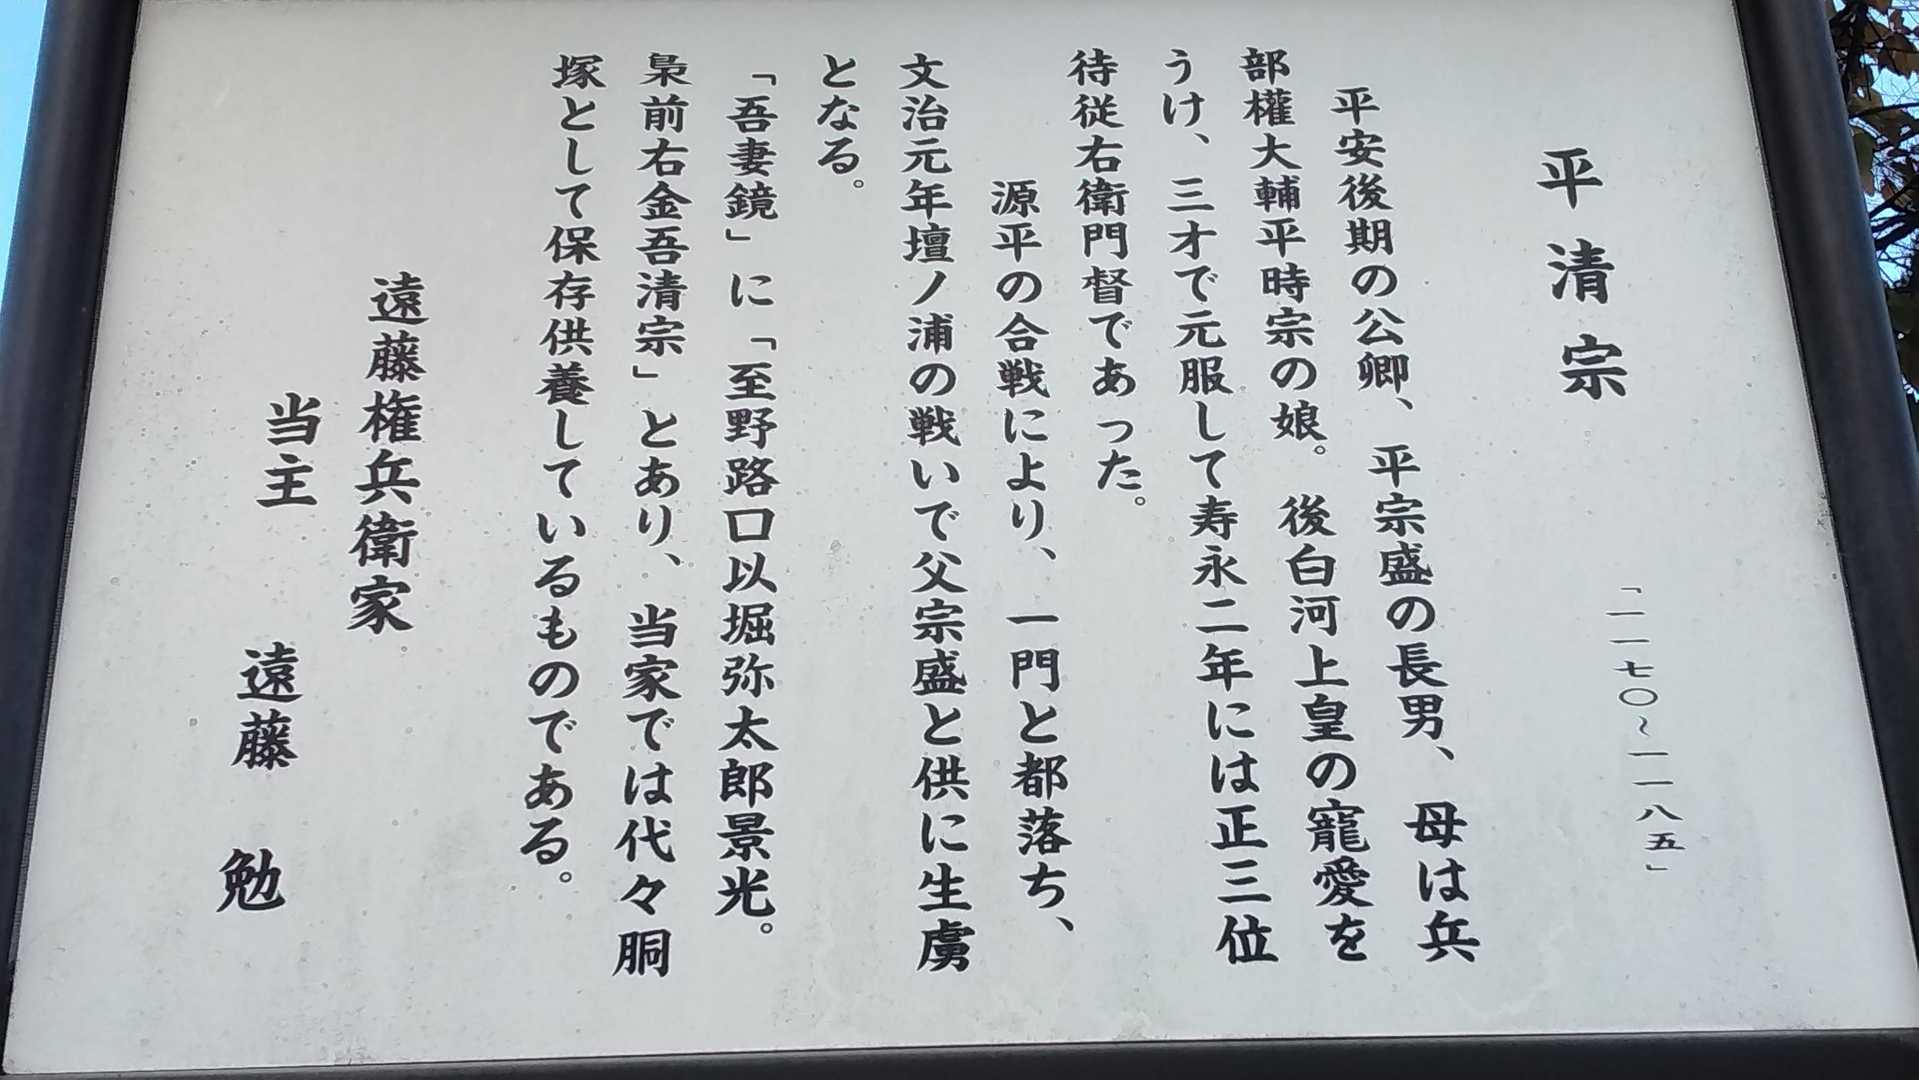 平清宗
「一一七〇～一一八五」
平安後期の公卿、平宗盛の長男、母は兵
部權大輔平時宗の娘。後白河上皇の寵愛を
うけ、三才で元服して寿永二年には正三位
待従右衛門督であった。
源平の合戦により、一門と都落ち、
文治元年壇ノ浦の戦いで父宗盛と供に生虜
となる。
「吾妻鏡」に「至野路口以堀弥太郎景光。
梟前右金吾清宗」とあり、当家では代々胴
塚として保存供養しているものである。
遠藤権兵衛家
当主 遠藤 勉